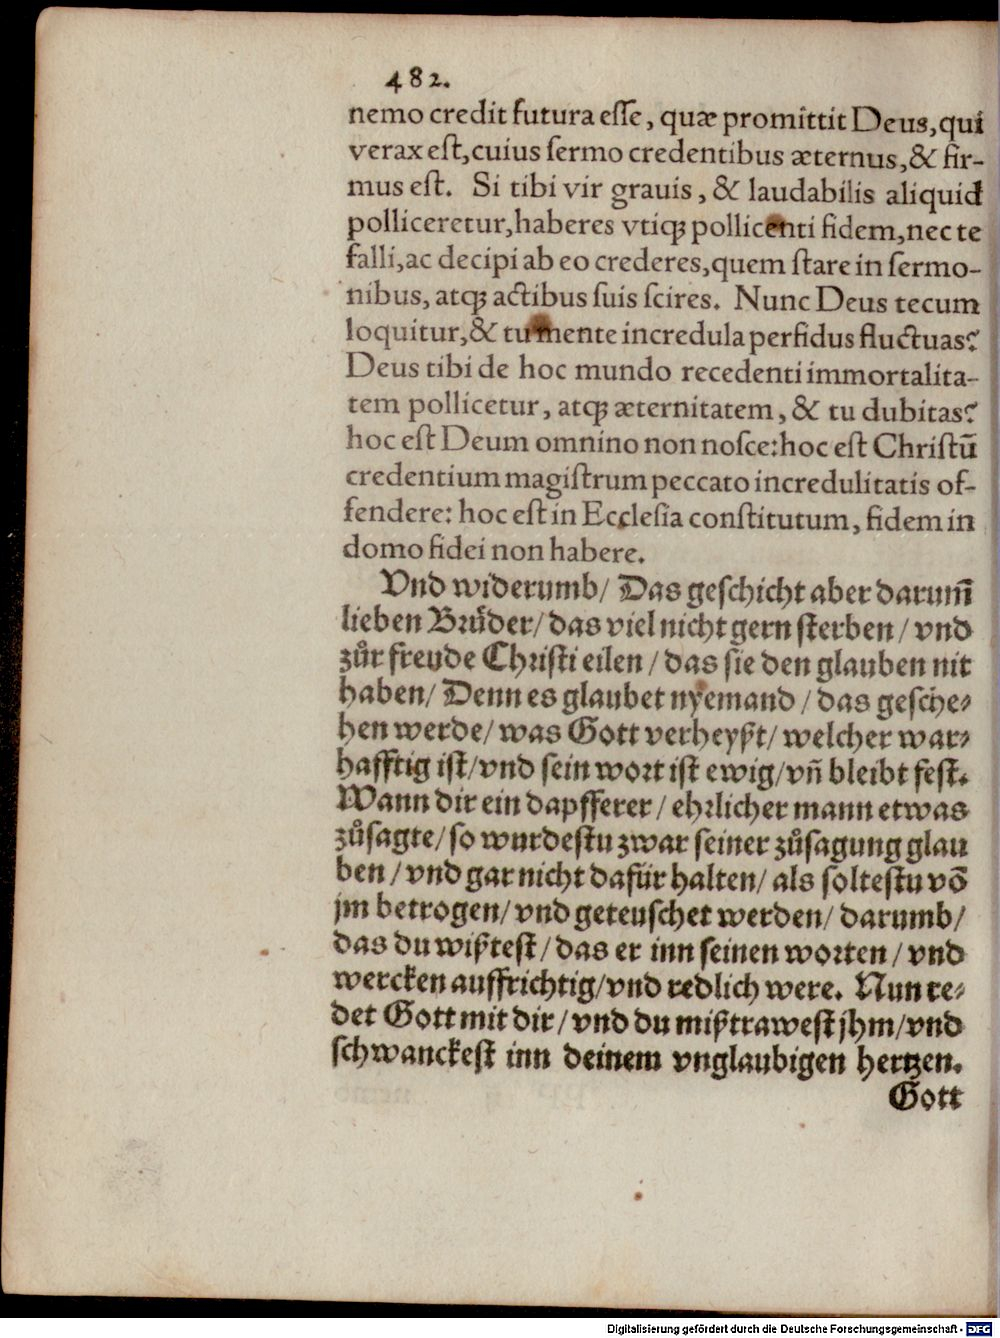 482.
nemo credit futura eſſe, quæ promittit Deus, qui
verax eſt, cuius ſermo credentibus æternus, & fir-
mus eſt. Si tibi vir grauis, & laudabilis aliquid
polliceretur, haberes vtiqꝫ pollicenti fidem, nec te
falli, ac decipi ab eo crederes, quem ſtare in ſermo-
nibus, atqꝫ actibus ſuis ſcires. Nunc Deus tecum
loquitur, & tu mente incredula perfidus fluctuas?
Deus tibi de hoc mundo recedenti immortalita-
tem pollicetur, atqꝫ æternitatem, & tu dubitas?
hoc eſt Deum omnino non noſce: hoc eſt Chriſtū
credentium magiſtrum peccato incredulitatis of-
fendere: hoc eſt in Eccleſia conſtitutum, fidem in
domo fidei non habere.
Vnd widerumb/ Das geſchicht aber darum̄
lieben Bruͤder/ das viel nicht gern ſterben/ vnd
zůr freude Chriſti eilen/ das ſie den glauben nit
haben/ Denn es glaubet nyemand/ das geſche⸗
hen werde/ was Gott verheyſzt/ welcher war⸗
hafftig iſt/ vnd ſein wort iſt ewig/ vn̄ bleibt feſt.
Wann dir ein dapfferer/ ehrlicher mann etwas
zůſagte/ ſo wurdeſtu zwar ſeiner zůſagung glau
ben/ vnd gar nicht dafür halten/ als ſolteſtu vō
jm betrogen/ vnd geteuſchet werden/ darumb/
das du wißteſt/ das er inn ſeinen worten/ vnd
wercken auffrichtig/ vnd redlich were. Nun re⸗
det Gott mit dir/ vnd du mißtraweſt jhm/ vnd
ſchwanckeſt inn deinem vnglaubigen hertzen.
Gott
Digitalisierung gefördert durch die Deutsche Forschungsgemeinschaft - DFG